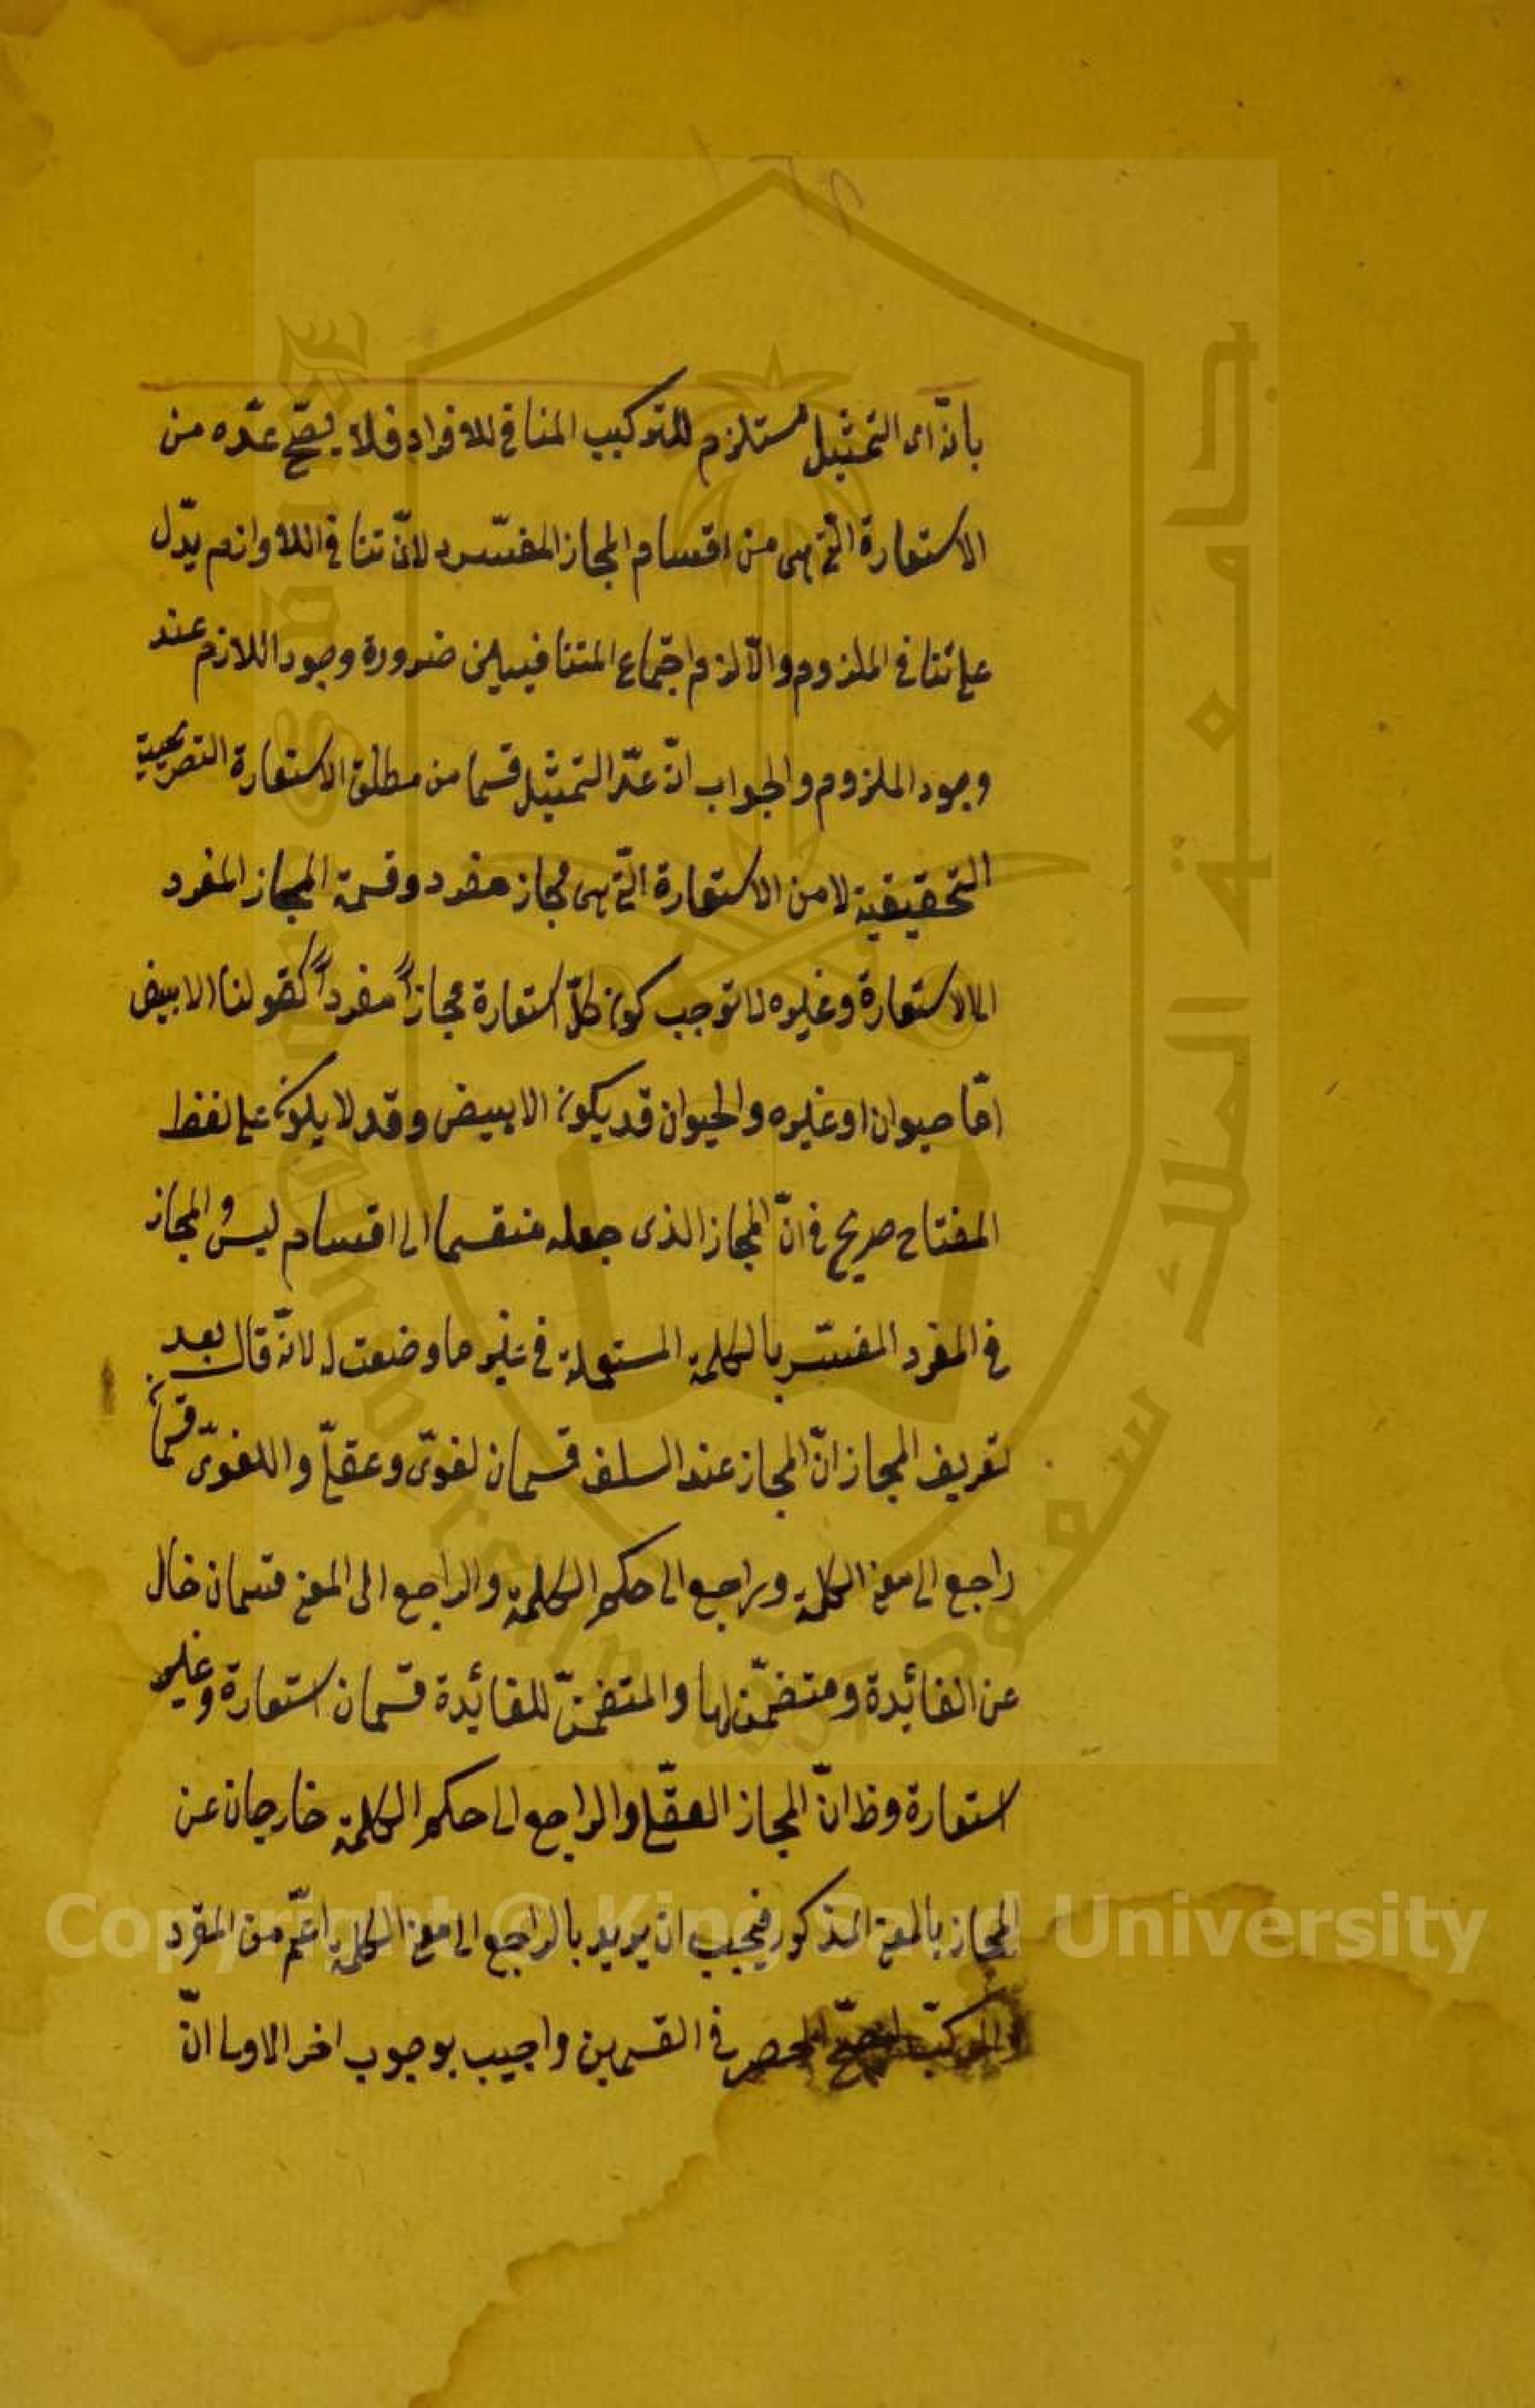 بانّه اى التمثيل مستلزم للتركيب المنافى للافراد فلا يصّح عدّه من
الاستعارة الّتى هى من اقسام المجاز المفسّر لانّ تنافى اللاوازم يدّل
على تنافى الملزوم والّا لزم اجتماع المتنافيين ضرورة وجود اللازم عند
وجود الملزوم والجواب انّ عدّ التمثيل قسما من مطلق الاستعارة التصريحية
التحقيقية لا من الاستعارة الّتى هى مجاز مفرد وقسمة المجاز المفرد
الى الاستعارة وغيره لا توجب كون كلّ استعارة مجازاً مفرداً كقولنا الابيض
امّا حيوان او غيره والحيوان قد يكون الابيض وقد لا يكون على لفظ
المفتاح صريح فى انّ المجاز الذى جعله منقسما الى اقسام ليس هو المجاز
فى المفرد المفسّر بالكلمة المستعملة فى غير ما وضعت له لانّه قال بعد
تعريف المجاز انّ المجاز عند السلف قسمان لغوىّ وعقلىّ واللغوىّ قسمان
راجع الى معنى الكلمة وراجع الى حكم الكلمة والراجع الى المعنى قسمان خال
عن الفائدة ومتضمّن لها والمتضمّن للفائدة قسمان استعارة وغير
استعارة وظ انّ المجاز العقلّى والراجع الى حكم الكلمة خارجان عن
المجاز بالمعنى المذكور فيجب ان يريد بالراجع الى معنى الكلمة اعّم من المفرد
والمركّب ليصحّ الحصر فى القسمين واجيب بوجوب اخر الاول انّ
جامعة الملك سعود
King Saud University
Copyright © King Saud University